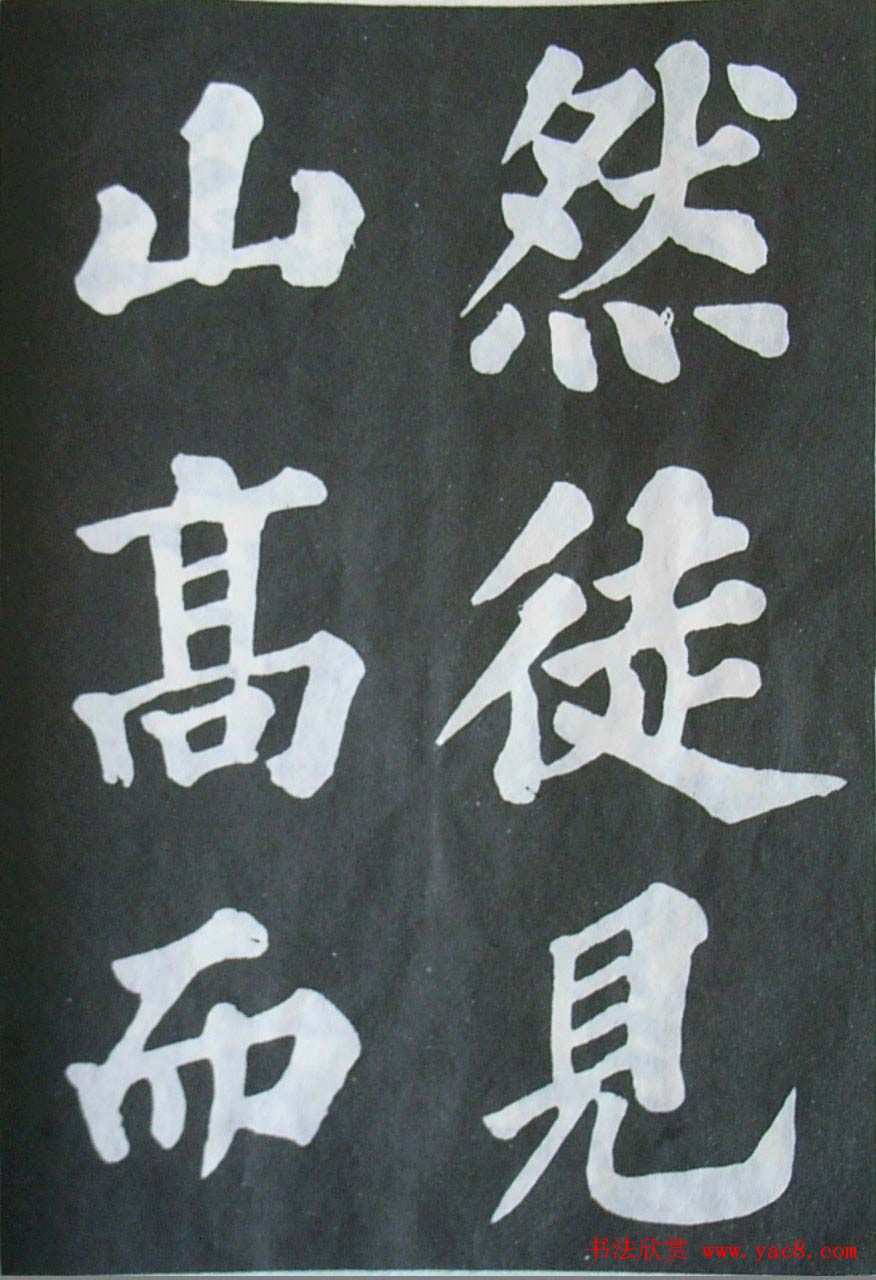 然徒見
山髙而
书法欣赏 www.yac8.com